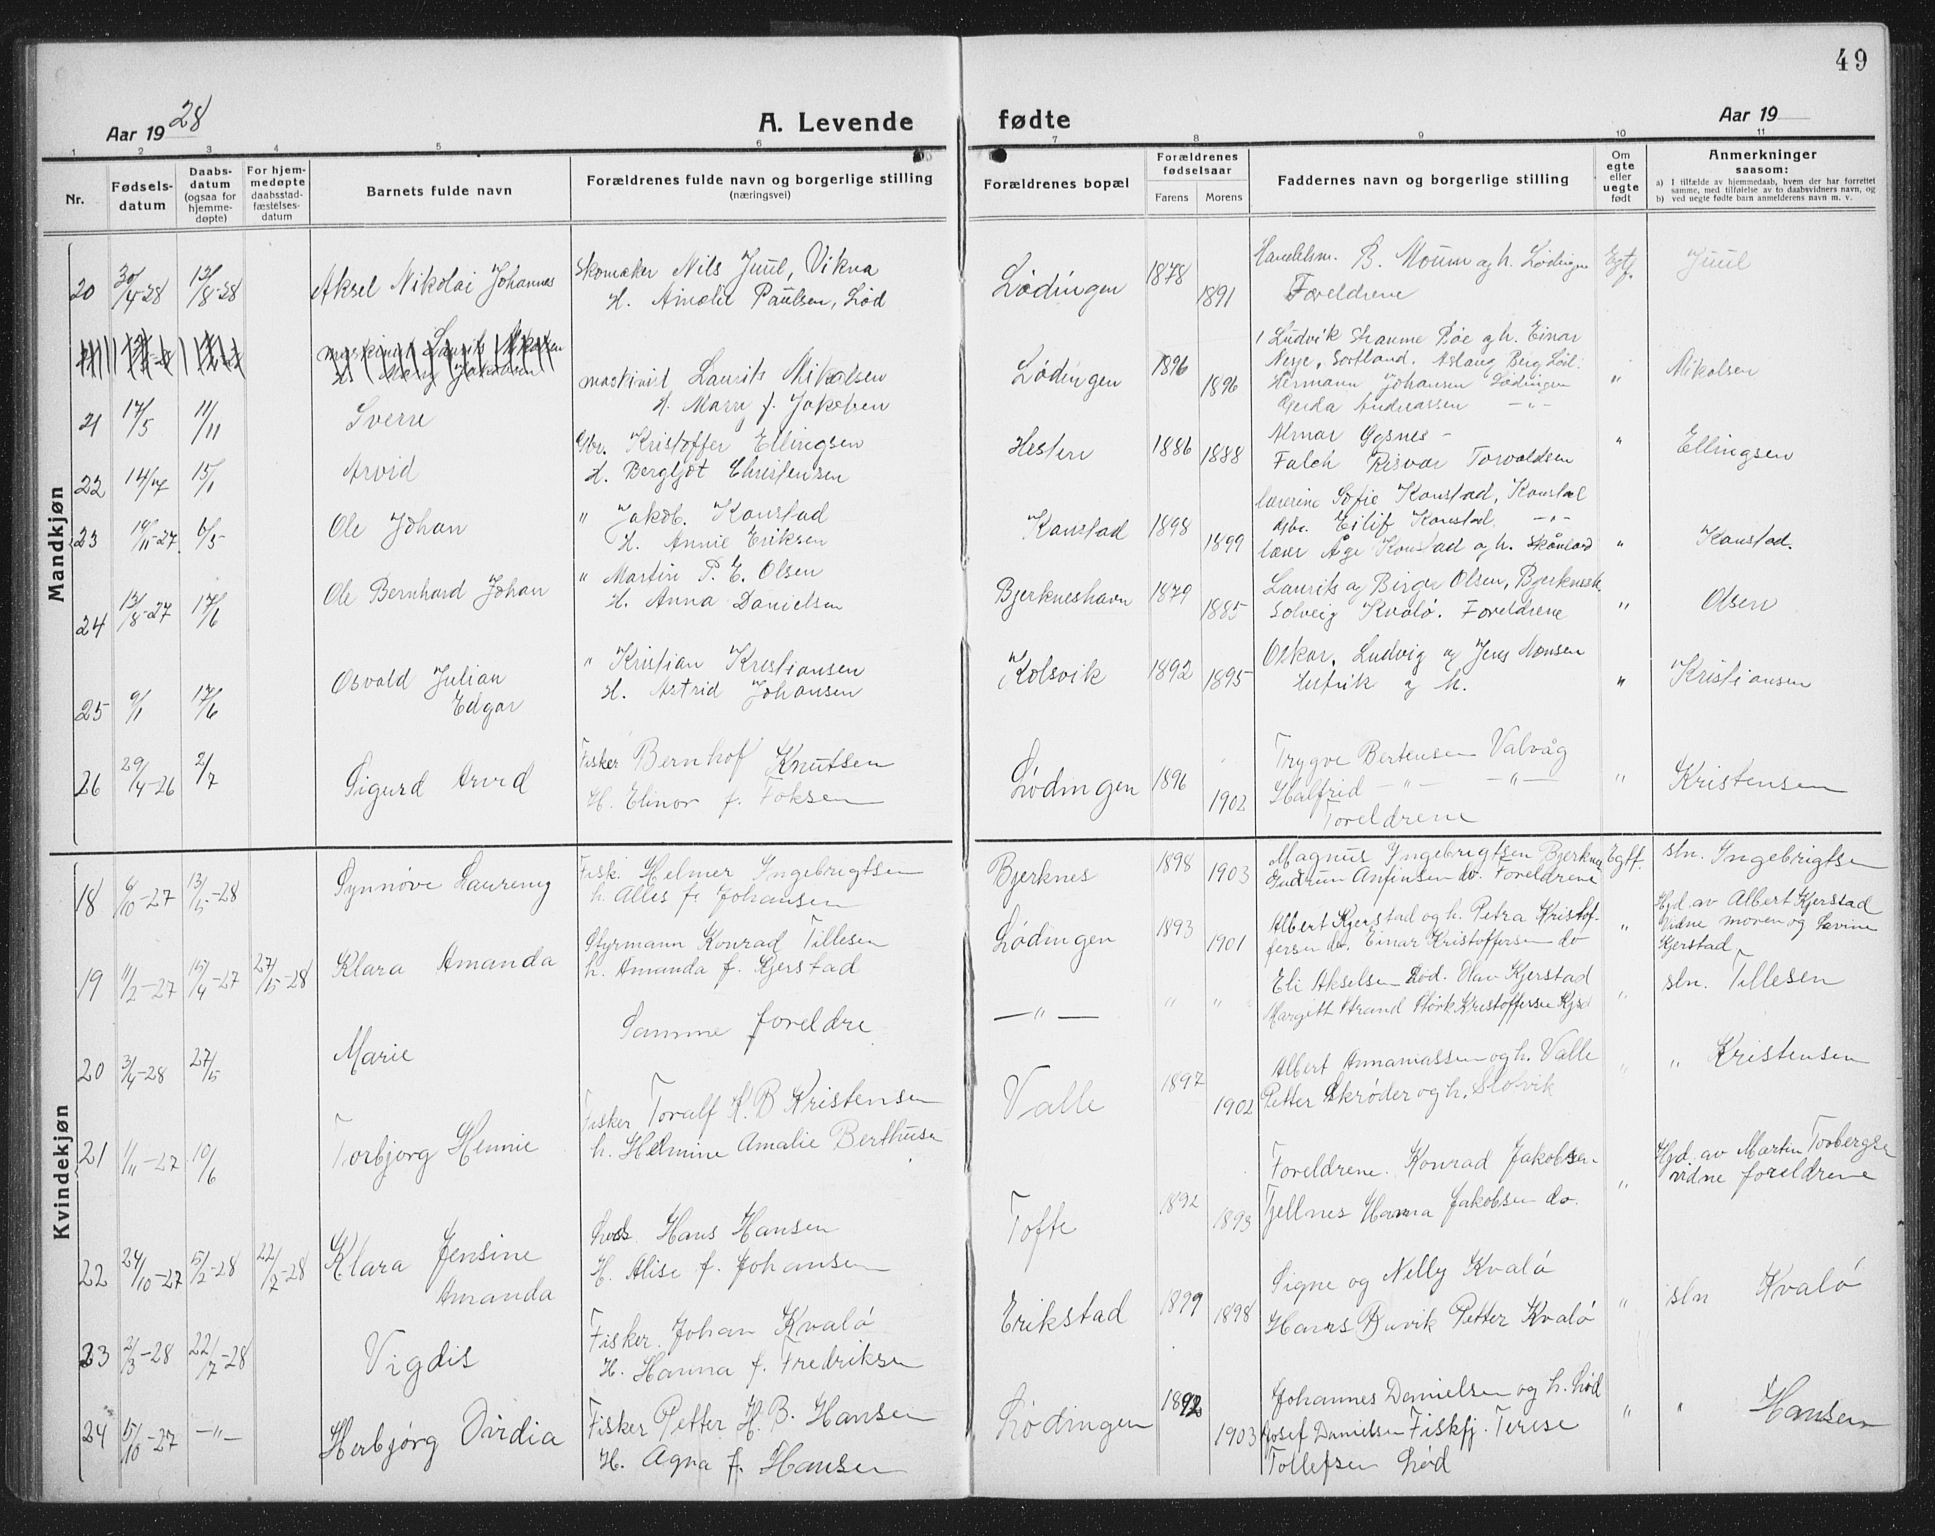 49
Aar 1928
A. Levende fødte
Aar 19
1 2 3 4 5 6 7 8 9 10 11
Nr.
Fødsels-
datum
Daabs-
datum
(ogsaa for
hjemme-
døpte)
For hjem-
medøpte
daabsstad-
fæstelses-
datum
Barnets fulde navn
Forældrenes fulde navn og borgerlige stilling
(næringsvei)
Forældrenes bopæl
Forældrenes
fødselsaar
Farens Morens
Faddernes navn og borgerlige stilling
Om
egte
eller
uegte
født
Anmerkninger
saasom:
a) I tilfælde av hjemmedaab, hvem der har forrettet
samme, med tilføielse av to daabsvidners navn, og
b) ved uegte fødte barn anmelderens navn m. v.
Mandkjøn
20 30/4-28 12/8-28 Aksel Nikolai Johannes
Skomaker Nils Juul, Vikna
H. Amalie Paulsen, Lød
Lødingen 1878 1891
Handelsm. B. Moum og h. Lødingen
Foreldrene
Egtf. Juul
maskinist Laurits Mikalsen
H. Mary f. Jakobsen
21 17/5 11/11 Sverre
maskinist Laurits Mikalsen
H. Mary f. Jakobsen
Lødingen 1896 1896
Ludvik Skaume Bøe og h. Einar
Nesje, Sortland. Aslaug Berg Lød.
Hermann Johansen Lødingen
Gerda Andreassen —"—
" Mikalsen
22 14/4 15/1 Arvid
Gbr. Kristoffer Ellingsen
H. Bergljot Christensen
Hestern 1886 1888
Almar Gysnes -
Falch Risvær Torvaldsen
" Ellingsen
23 14/11-27 6/5 Ole Johan
" Jakob. Kanstad
H. Annie Eriksen
Kanstad 1898 1899
lærerine Sofie Kanstad, Kanstad
Gbr. Eilif Kanstad —"—
lærer Åge Kanstad og h. Skånland
" Kanstad.
24 13/8-27 17/6 Ole Bernhard Johan
" Martin P. E. Olsen
H. Anna Danielsen
Bjerkneshavn 1879 1885
Laurits og Birger Olsen, Bjerknesh.
Solveig Kvalø. Foreldrene
" Olsen
25 9/1 17/6 Osvald Julian
Edgar
" Kristian Kristiansen
H. Astrid Johansen
Kolsvik 1892 1895
Oskar, Ludvig og Jens Monsen
og M.
" Kristiansen
26 29/4-26 2/7 Sigurd Arvid
Fisker Bernhof Knutsen
H. Elinor f. Foksen
Lødingen 1896 1902
Trygve Bertensen Valvåg
Halfrid —"— —"—
Foreldrene
" Kristensen
Kvindekjøn
18 6/10-27 13/5-28 Synnøve Laureny
Fisk. Helmer Ingebrigtsen
h. Alles f. Johansen
Bjerknes 1898 1903
Magnus Ingebrigtsen Bjerknes
Gudrun Anfinsen do. Foreldrene
Egtf. sln. Ingebrigtsen
19 11/2-27 15/4-27 27/5-28 Klara Amanda
Styrmann Konrad Tillesen
h. Amanda f. Kjerstad
Lødingen 1893 1901
Albert Kjerstad og h. Petra Kristof-
fersen do. Einar Kristoffersen do
" Hjd av Albert Kjerstad
Vidne moren og Lavine
Kjerstad
20 3/4-28 27/5 Marie
Samme foreldre
—"— " "
Eli Akselsen Lød. Olav Kjerstad
Margith Strand Størk Kristoffersen Kjsd
" sln. Tillesen
21 1/11-27 10/6 Torbjørg Hennie
Fisker Toralf H. B Kristensen
h. Helmine Amalie Berthusen
Valle 1897 1902
Albert Annaniassen og h. Valle
Petter Skrøder og h. Slotvik
" " Kristensen
22 24/10-27 5/2-28 22/7-28 Klara Jensine
Amanda
Hans Hansen
H. Alise f. Johansen
Tofte 1892 1893
Foreldrene. Konrad Jakobsen
Fjellnes Hanna Jakobsen do.
" Hjd. av Martin Torbergsen
vidne foreldrene
23 2/3-28 22/7-28 Vigdis
Fisker. Johan Kvalø
H. Hanna f. Fredriksen
Erikstad 1899 1898
Signe og Nelly Kvalø
Hans Buvik Petter Kvalø
" sln Kvalø
24 5/10-27 —"— Herbjørg Ovidia
Fisker Petter H. B. Hansen
H. Agna f. Hansen
Lødingen 1892 1903
Johannes Danielsen og h. Lød
Josef Danielsen Fiskfj. Terese
Tollefsen Lød
" " Hansen